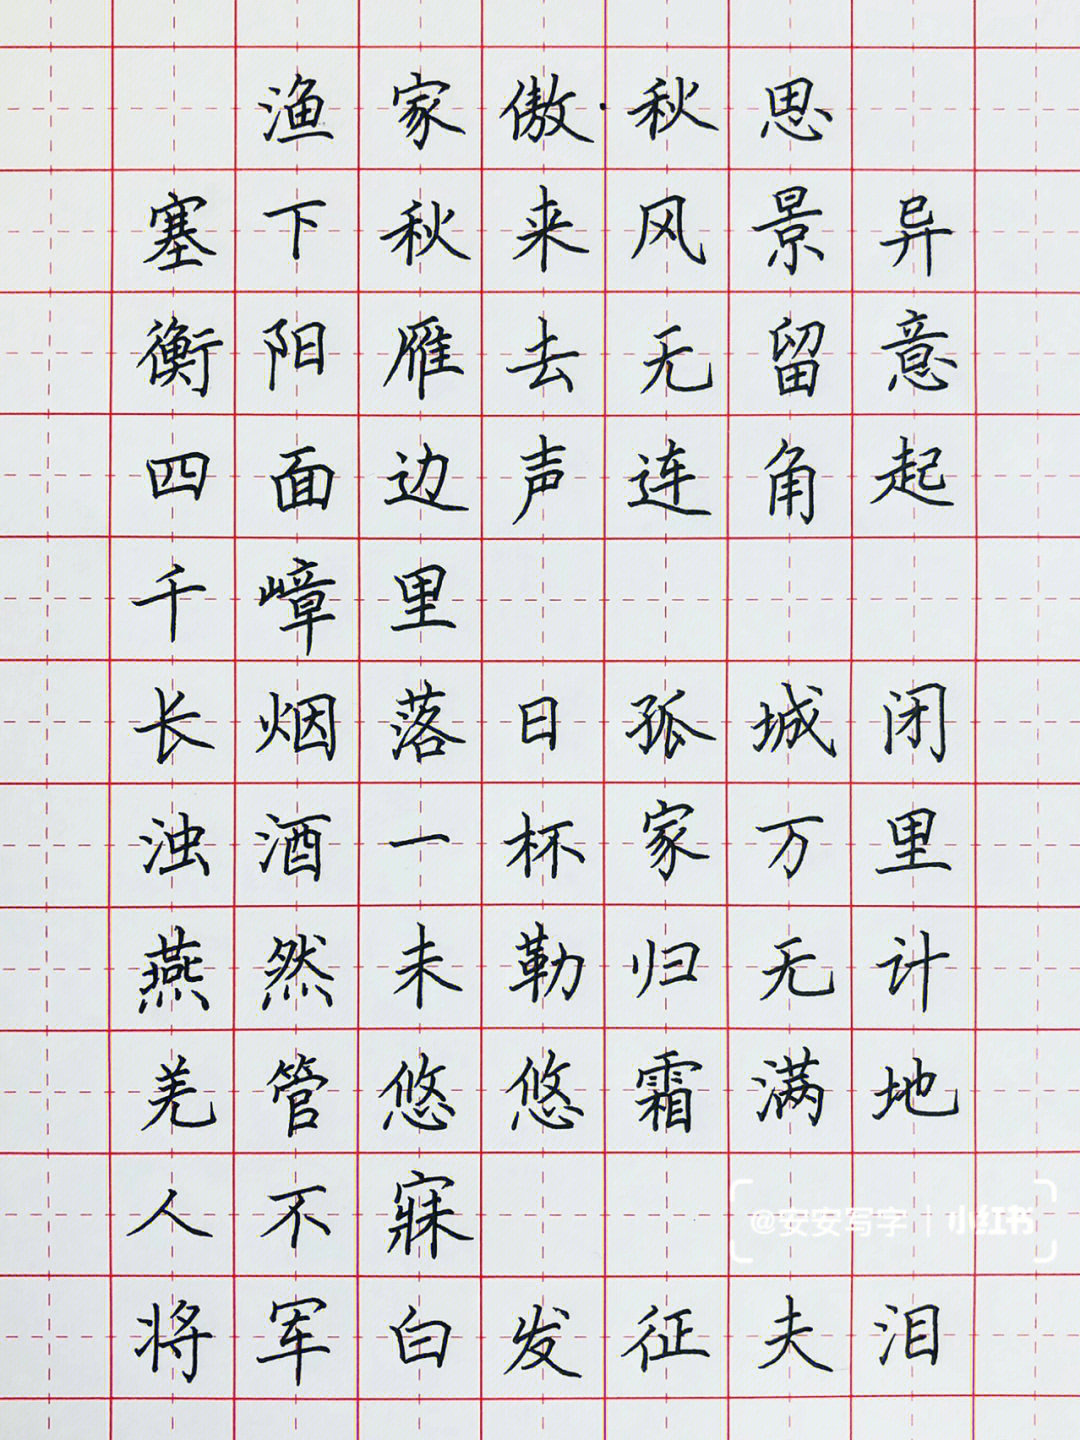 渔家傲·秋思
塞下秋来风景异
衡阳雁去无留意
四面边声连角起
千嶂里
长烟落日孤城闭
浊酒一杯家万里
燕然未勒归无计
羌管悠悠霜满地
人不寐
@安安写字 | 小红书
将军白发征夫泪